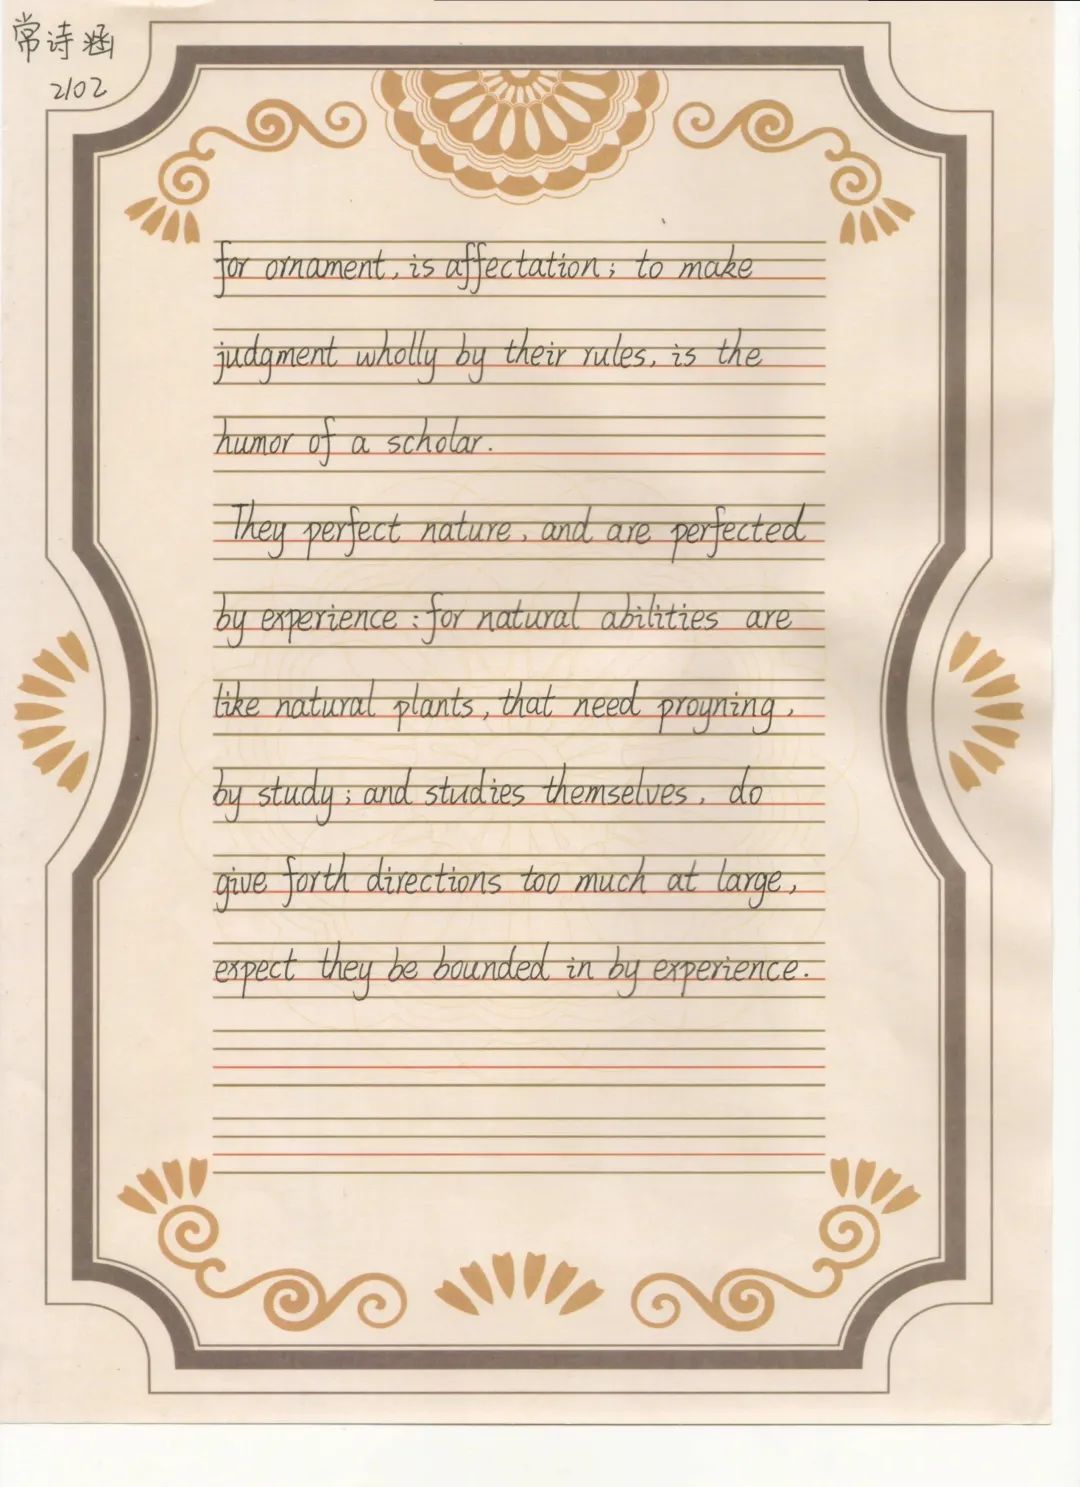 常诗涵
2102
for ornament, is affectation; to make
judgment wholly by their rules, is the
humor of a scholar.
They perfect nature, and are perfected
by experience: for natural abilities are
like natural plants, that need proyning,
by study; and studies themselves, do
give forth directions too much at large,
expect they be bounded in by experience.